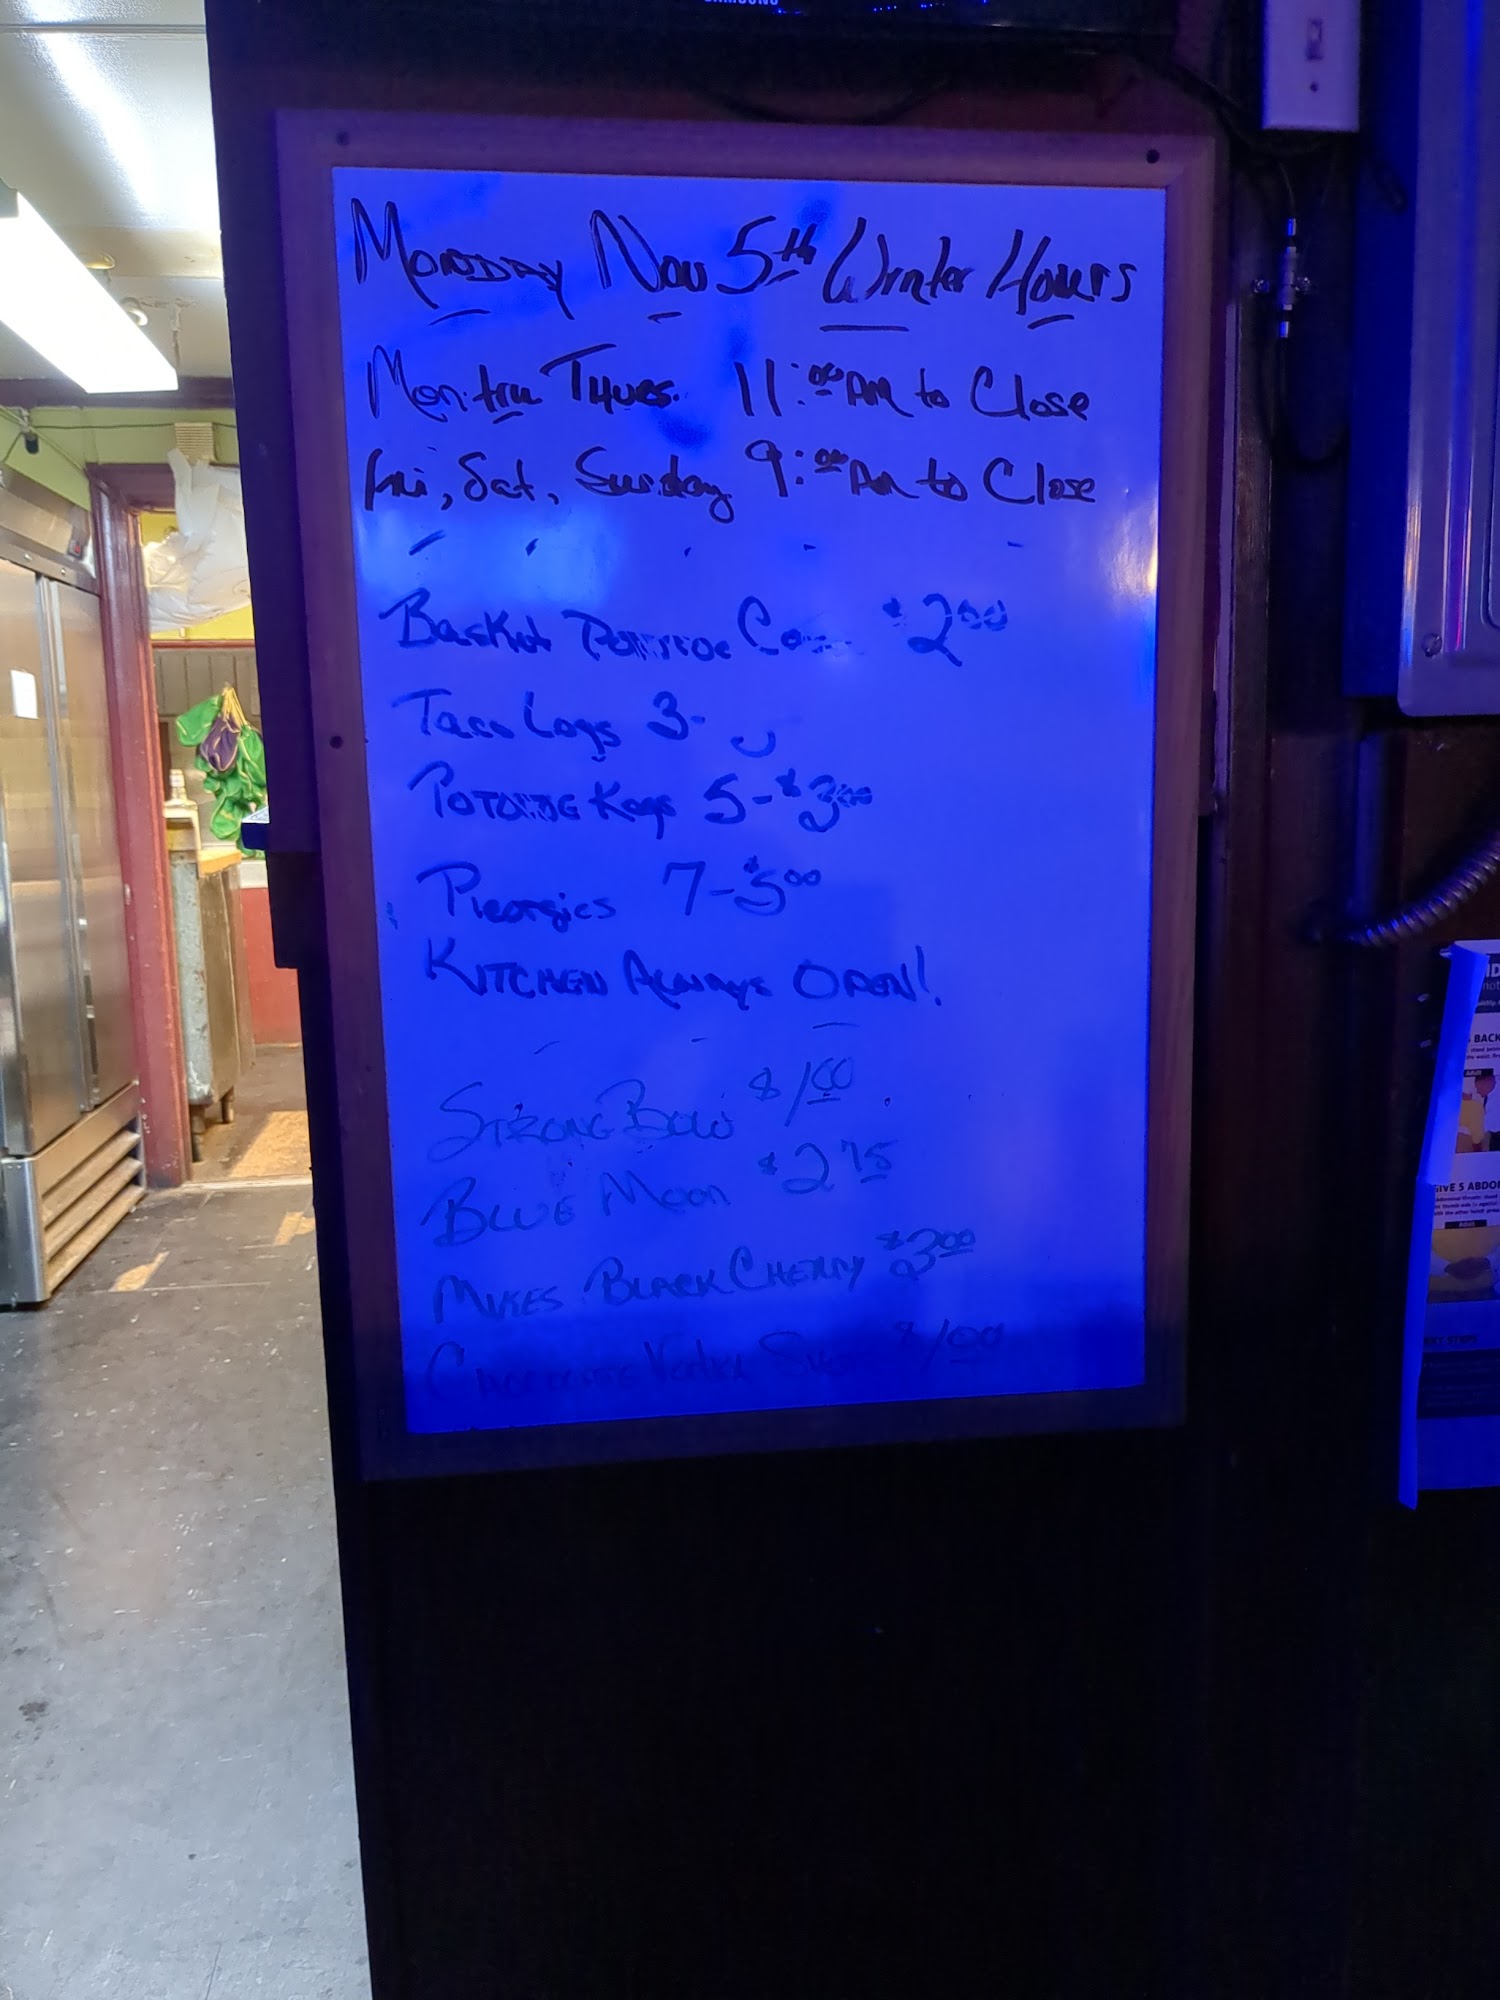 SAMSUNG
Monday Nov 5th Winter Hours
Mon. tru Thurs. 11:00 AM to Close
Fri, Sat, Sunday 9:00 AM to Close
Basket $2.00
Taco Logs 3-
Kegs 5-$3.00
Pieorgies 7-$5.00
KITCHEN Always OPEN!
STRONG BOW $1.00
BLUE MOON $2.75
MIKES BLACK CHERRY $3.00
Vodka $1.00
BACK
GIVE 5 ABDO